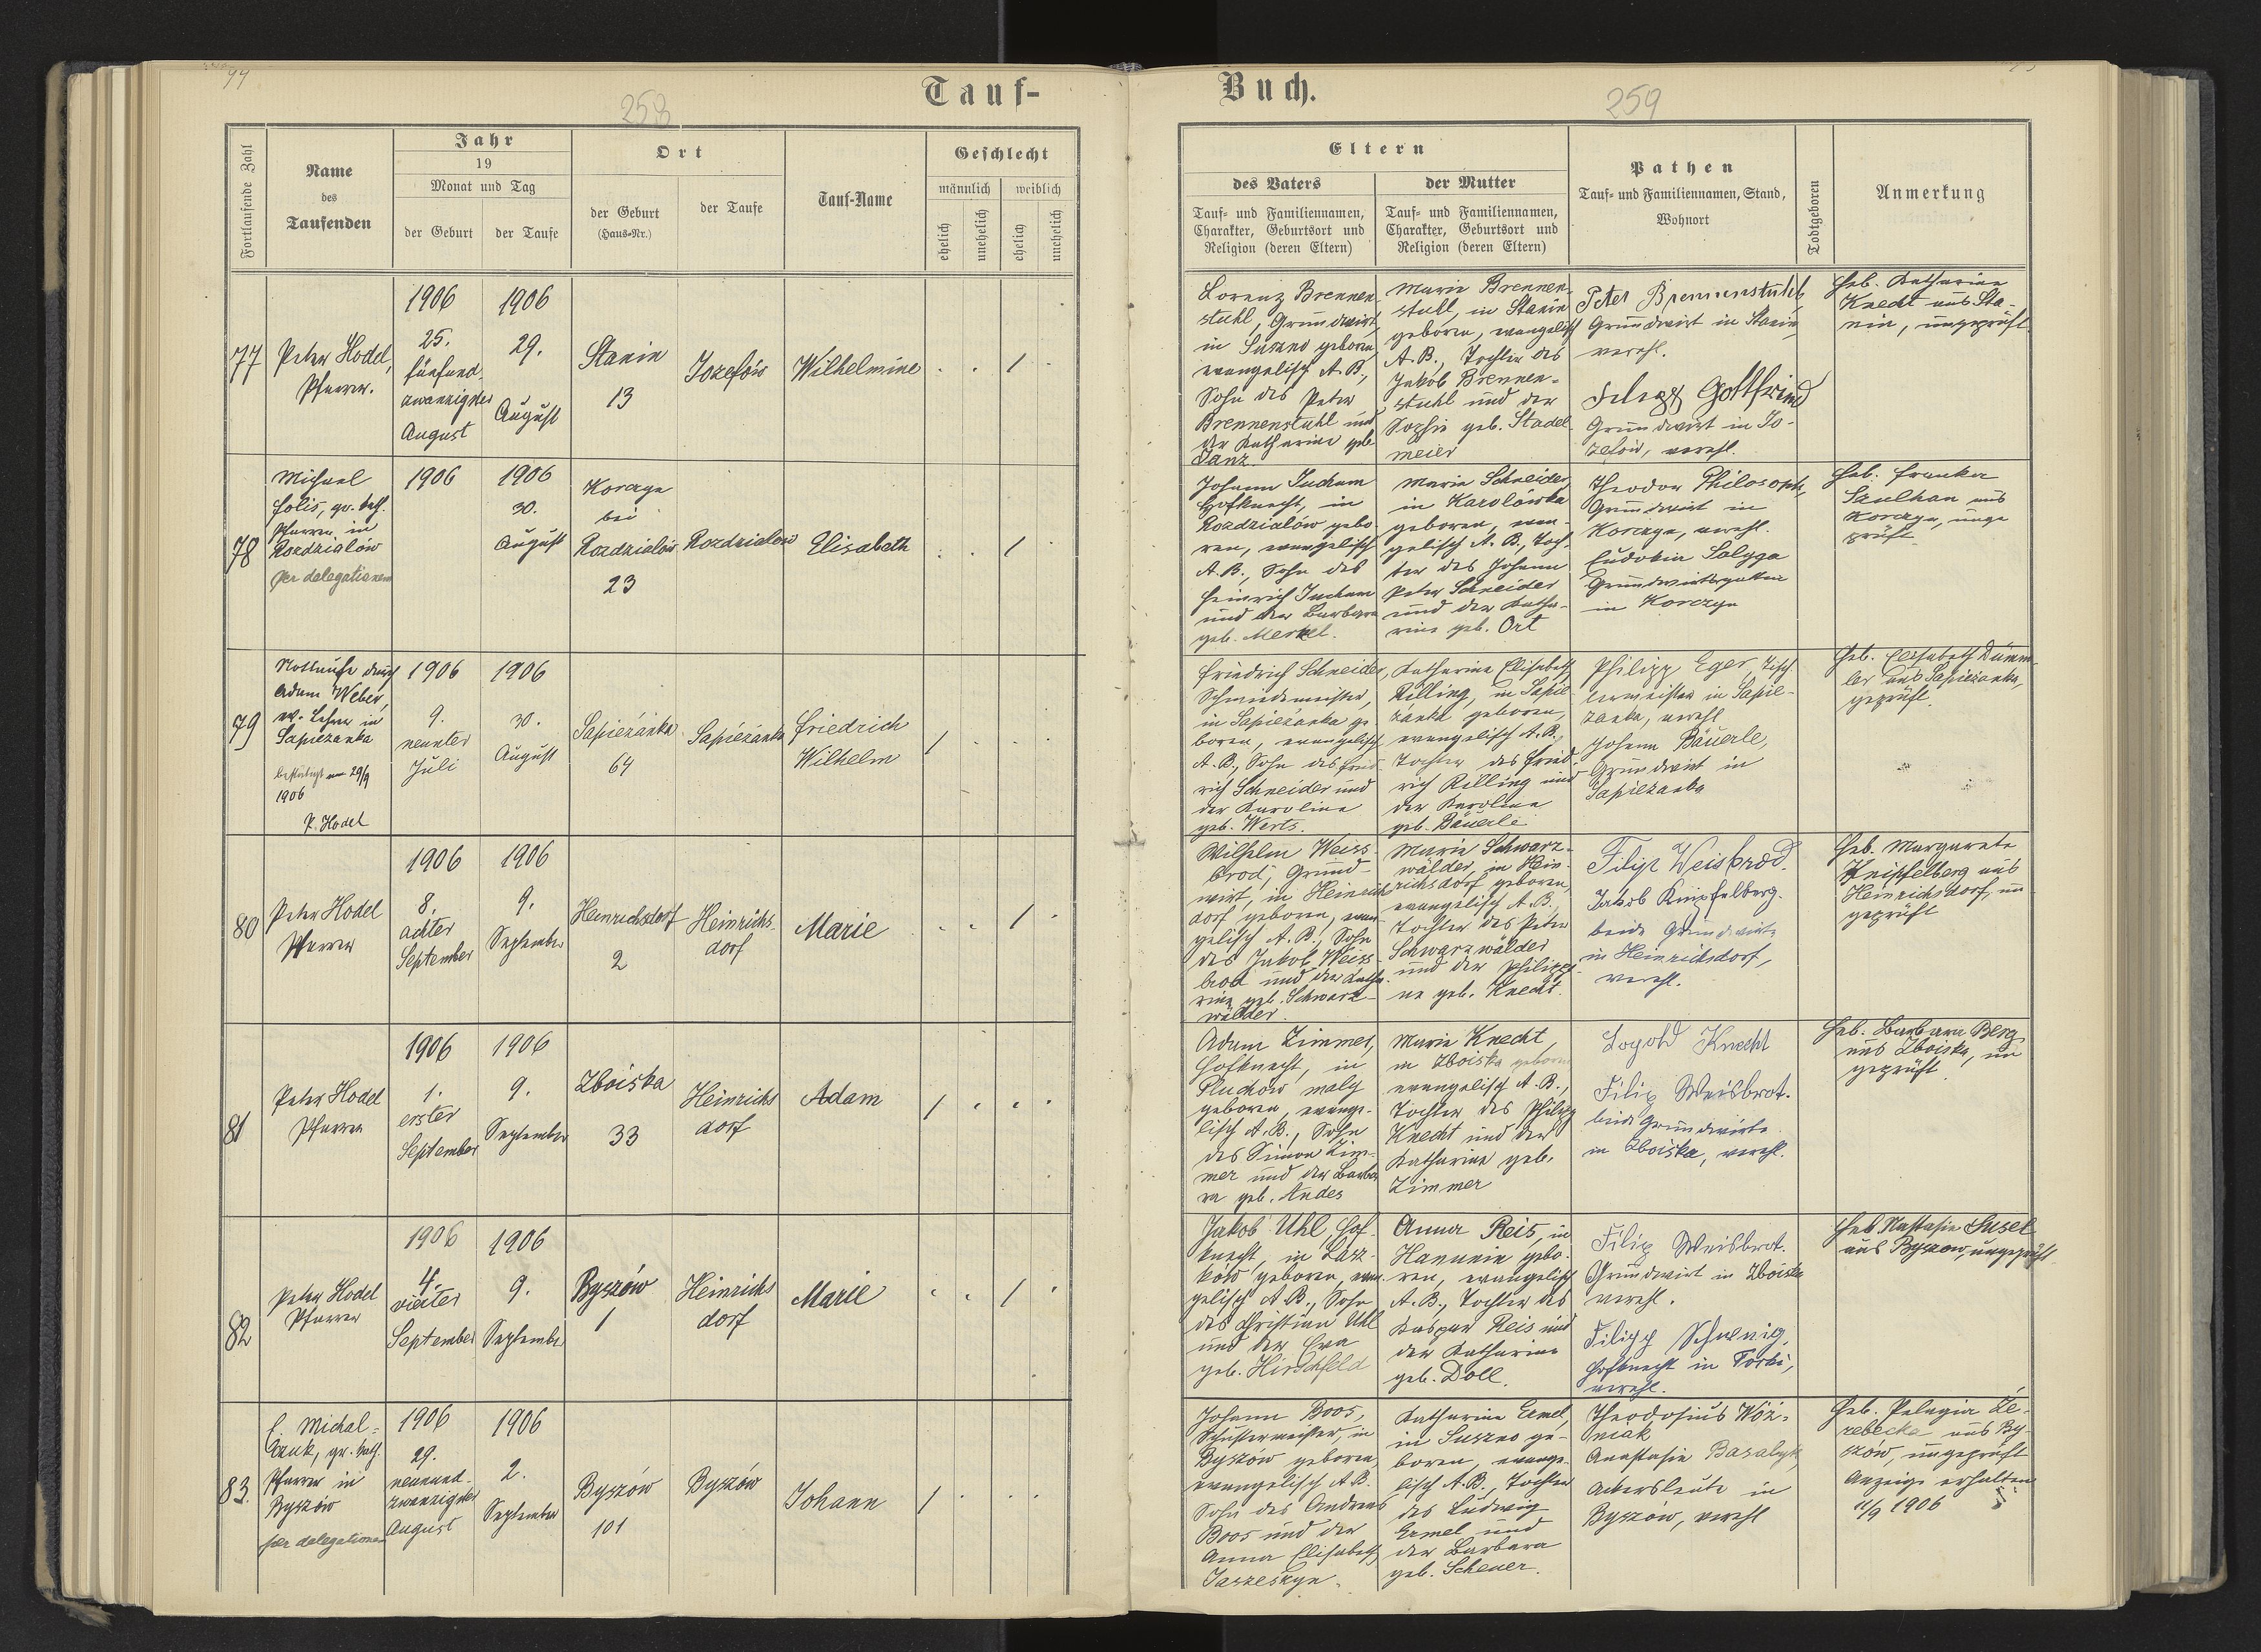 Tauf-
Buch.
258
259
Fortlaufende Zahl
Name
des
Taufenden
Jahr
19
Monat und Tag
der Geburt
der Taufe
Ort
der Geburt
(Haus-Nr.)
der Taufe
Tauf-Name
Geschlecht
männlich
weiblich
ehelich
unehelich
ehelich
unehelich
Eltern
des Vaters
Tauf- und Familiennamen,
Charakter, Geburtsort und
Religion (deren Eltern)
der Mutter
Tauf- und Familiennamen,
Charakter, Geburtsort und
Religion (deren Eltern)
Pathen
Tauf- und Familiennamen, Stand,
Wohnort
Todtgeboren
Anmerkung
77
Peter Hodel,
Pfarrer.
1906
25.
fünfund-
zwanzigster
August
1906
29.
August
Stanin
13
Jozefów
Wilhelmine
1
Lorenz Brennen-
stuhl, Grundwirt,
in Suszno geboren,
evangelisch A. B.,
Sohn des Peter
Brennenstuhl und
der Katharine geb.
Janz.
Marie Brennen-
stuhl, in Stanin
geboren, evangelisch
A. B., Tochter des
Jakob Brennen-
stuhl und der
Sophie geb. Stadel-
meier
Peter Brennenstuhl,
Grundwirt in Stanin,
verehl.
Gottfried
Grundwirt in Jo-
zefów, verehl.
Heb. Katharine
Knecht aus Sta-
nin, ungeprüft
78
Michael
Folis, gr. kath.
Pfarrer in
Rozdzialów
per delegationem
1906
1906
30.
August
Korczyn
bei
Rozdzialów
23
Rozdzialow
Elisabeth
1
Johann Jucham
Hofknecht, in
Rozdzialów gebo-
ren, evangelisch
A. B., Sohn des
Heinrich Jucham
und der Barbara
geb. Merkel.
Marie Schneider,
in Karolówka
geboren, evan-
gelisch A. B., Toch-
ter des Johann
Peter Schneider
und der Katha-
rine geb. Ort
Theodor Philosoph,
Grundwirt in
Korczyn, verehl.
Eudokia Salyga
Grundwirtsgattin
in Korczyn
Heb. Franka
Szulhan aus
Korczyn, unge-
prüft
79
Nottaufe durch
Adam Weber,
ev. Lehrer in
Sapieżanka
bestätigt am 29/9
1906
P. Hodel
1906
9.
neunter
Juli
1906
30.
August
Sapieżanka
64
Sapieżanka
Friedrich
Wilhelm
1
Friedrich Schneider,
Schmiedemeister,
in Sapieżanka ge-
boren, evangelisch
A. B., Sohn des Fried-
rich Schneider und
der Karoline
geb. Werts.
Katharine Elisabeth
Rilling, in Sapie-
żanka geboren,
evangelisch A. B.,
Tochter des Fried-
rich Rilling und
der Karoline
geb. Bäuerle
Philipp Eger, Tisch-
lermeister in Sapie-
żanka, verehl.
Johann Bäuerle,
Grundwirt in
Sapieżanka
Heb. Elisabeth Dümm-
ler aus Sapieżanka,
geprüft.
80
Peter Hodel
Pfarrer
1906
8.
achter
September
1906
9.
September
Heinrichsdorf
2
Heinrichs-
dorf
Marie
1
Wilhelm Weiss-
brod, Grund-
wirt, in Heinrichs-
dorf geboren, evan-
gelisch A. B., Sohn
des Jakob Weiss-
brod und der Katha-
rine geb. Schwarz-
wälder
Marie Schwarz-
wälder, in Hein-
richsdorf geboren,
evangelisch A. B.,
Tochter des Peter
Schwarzwälder
und der Philippi-
ne geb. Knecht.
Filip Weisbrod.
Jakob Knipfelberg.
beide Grundwirte
in Heinrichsdorf,
verehl.
Heb. Margarete
Knipfelberg aus
Heinrichsdorf, un-
geprüft
81
Peter Hodel
Pfarrer
1906
1.
erster
September
1906
9.
September
Zboiska
33
Heinrichs
dorf
Adam
1
Adam Zimmer,
Hofknecht, in
Pluchow maly
geboren, evange-
lisch A. B., Sohn
des Simon Zim-
mer und der Barba-
ra geb. Andes
Marie Knecht,
in Zboiska geboren
evangelisch A. B.,
Tochter des Philipp
Knecht und der
Katharine geb.
Zimmer
Knecht
Filip Weisbrot.
beide Grundwirte
in Zboiska, verehl.
Heb. Barbara Berg
aus Zboiska, un-
geprüft
82
Peter Hodel
Pfarrer
1906
4.
vierter
September
1906
9.
September
Byszów
1
Heinrichs
dorf
Marie
1
Jakob Uhl, Hof-
knecht, in Lasz-
ków geboren, evan-
gelisch A. B., Sohn
des Christian Uhl
und der Eva
geb. Hirschfeld
Anna Reis, in
Hannnin gebo-
ren, evangelisch
A. B., Tochter des
Kaspar Reis und
der Katharine
geb. Doll.
Filip Weisbrot.
Grundwirt in Zboiska
verehl.
Filipp
Hofknecht in Torki,
verehl.
Heb Nastasia Susel
aus Byszow, ungeprüft
83.
f. Michal-
czuk, gr. kath.
Pfarrer in
Byszów
per delegationem
1906
29.
neunund-
zwanzigster
August
1906
2.
September
Byszów
101
Byszów
Johann
1
Johann Boos,
Schustermeister, in
Byszów geboren,
evangelisch A. B.
Sohn des Andreas
Boos und der
Anna Elisabeth
Jaszeskyn.
Katharine Ermel,
in Suszno ge-
boren, evange-
lisch A. B., Tochter
des Ludwig
Ermel und
der Barbara
geb. Scheuer.
Theodosius Woż-
niak
Anastasia Basalyk,
Ackersleute in
Byszów, verehl
Heb. Pelagia Że-
rebecka aus By-
szów, ungeprüft
Anzeige erhalten
11/9 1906